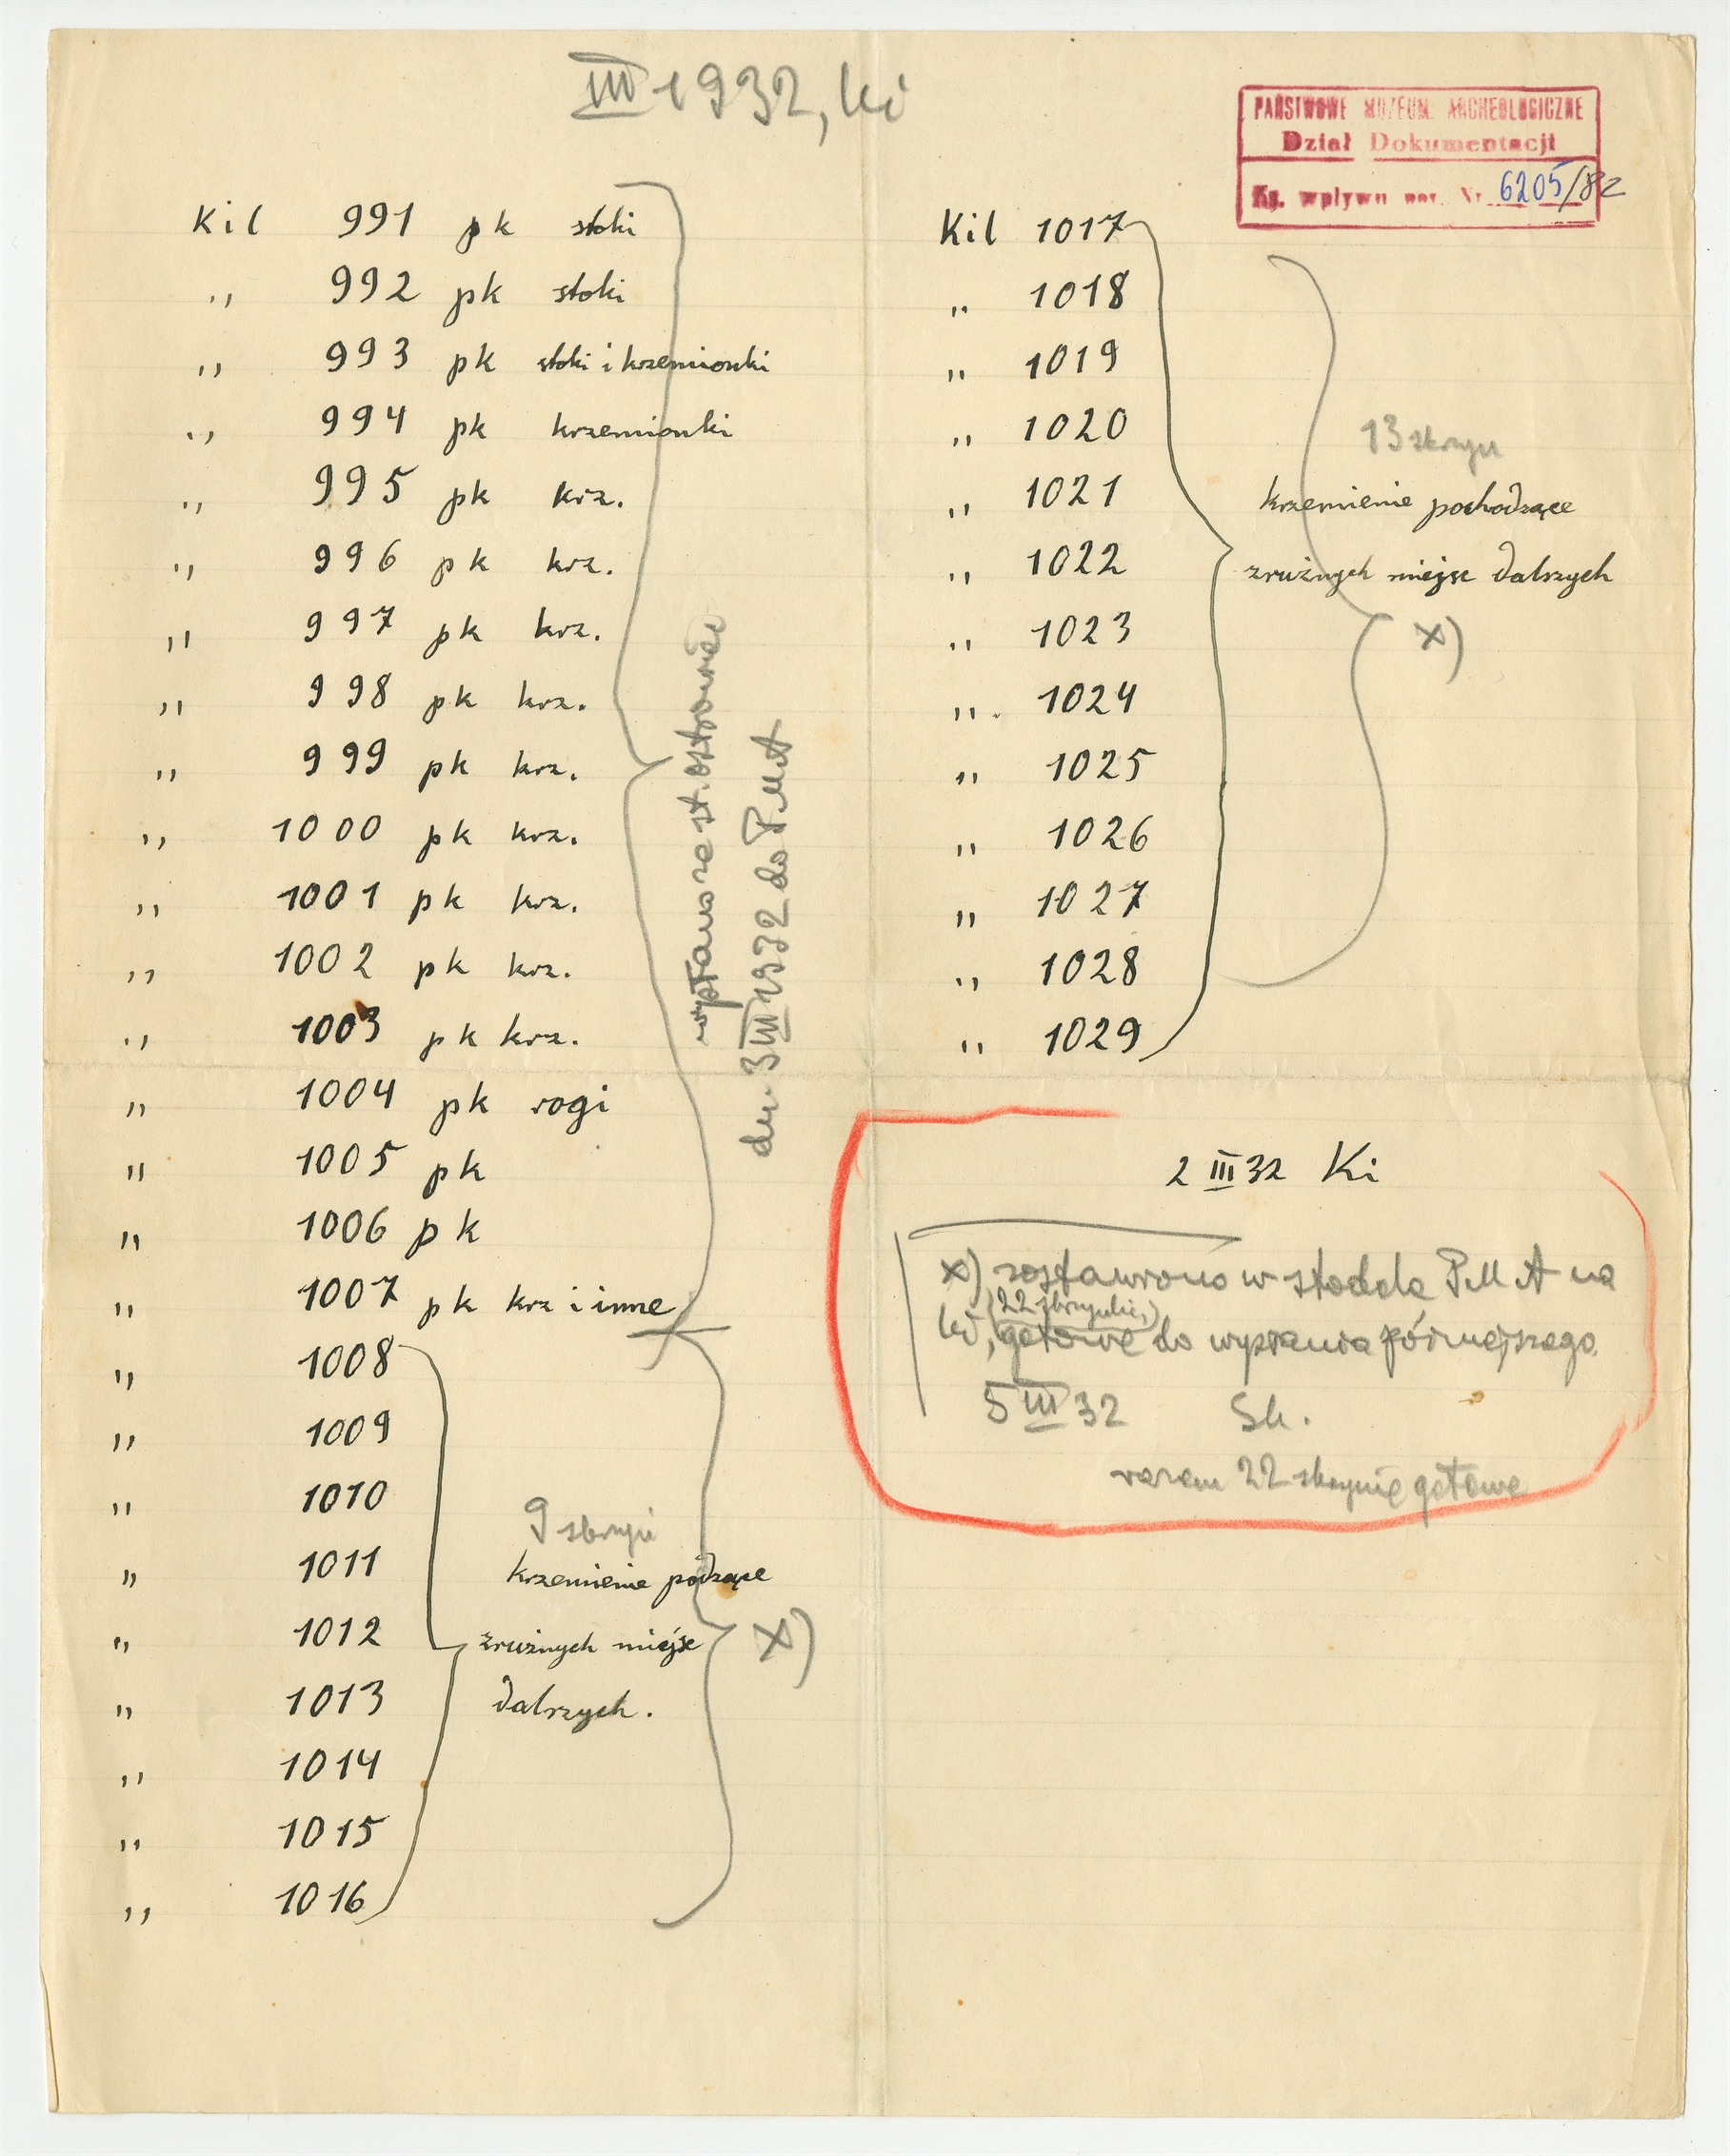 III 1932, ki
PAŃSTWOWE MUZEUM ARCHEOLOGICZNE
Dział Dokumentacji
Kg. wpływu nor. Nr. 6205/82
Kil 991 pk stoki
,, 992 pk stoki
,, 993 pk stoki i krzemionki
,, 994 pk krzemionki
,, 995 pk krz.
,, 996 pk krz.
,, 997 pk krz.
,, 998 pk krz.
,, 999 pk krz.
,, 1000 pk krz.
,, 1001 pk krz.
,, 1002 pk krz.
,, 1003 pk krz.
,, 1004 pk rogi
,, 1005 pk
,, 1006 pk
,, 1007 pk krz i inne
wysłano ze st. Ostrowiec
dn 3 III 1932 do PMA
,, 1008
,, 1009
,, 1010
,, 1011
,, 1012
,, 1013
,, 1014
,, 1015
,, 1016
9 skrzyń
krzemienie podzące
zrużnych miejsc
dalrzych.
x)
Kil 1017
,, 1018
,, 1019
,, 1020
,, 1021
,, 1022
,, 1023
,, 1024
,, 1025
,, 1026
,, 1027
,, 1028
,, 1029
13 skrzyń
krzemienie pochodzące
zrużnych miejsc dalrzych
x)
2 III 32 Ki
x) zostawiono w stodole PMA na
(22 skrzynie,)
ki, gotowe do wysłania późniejszego
5 III 32 Sk.
razem 22 skrzynie gotowe